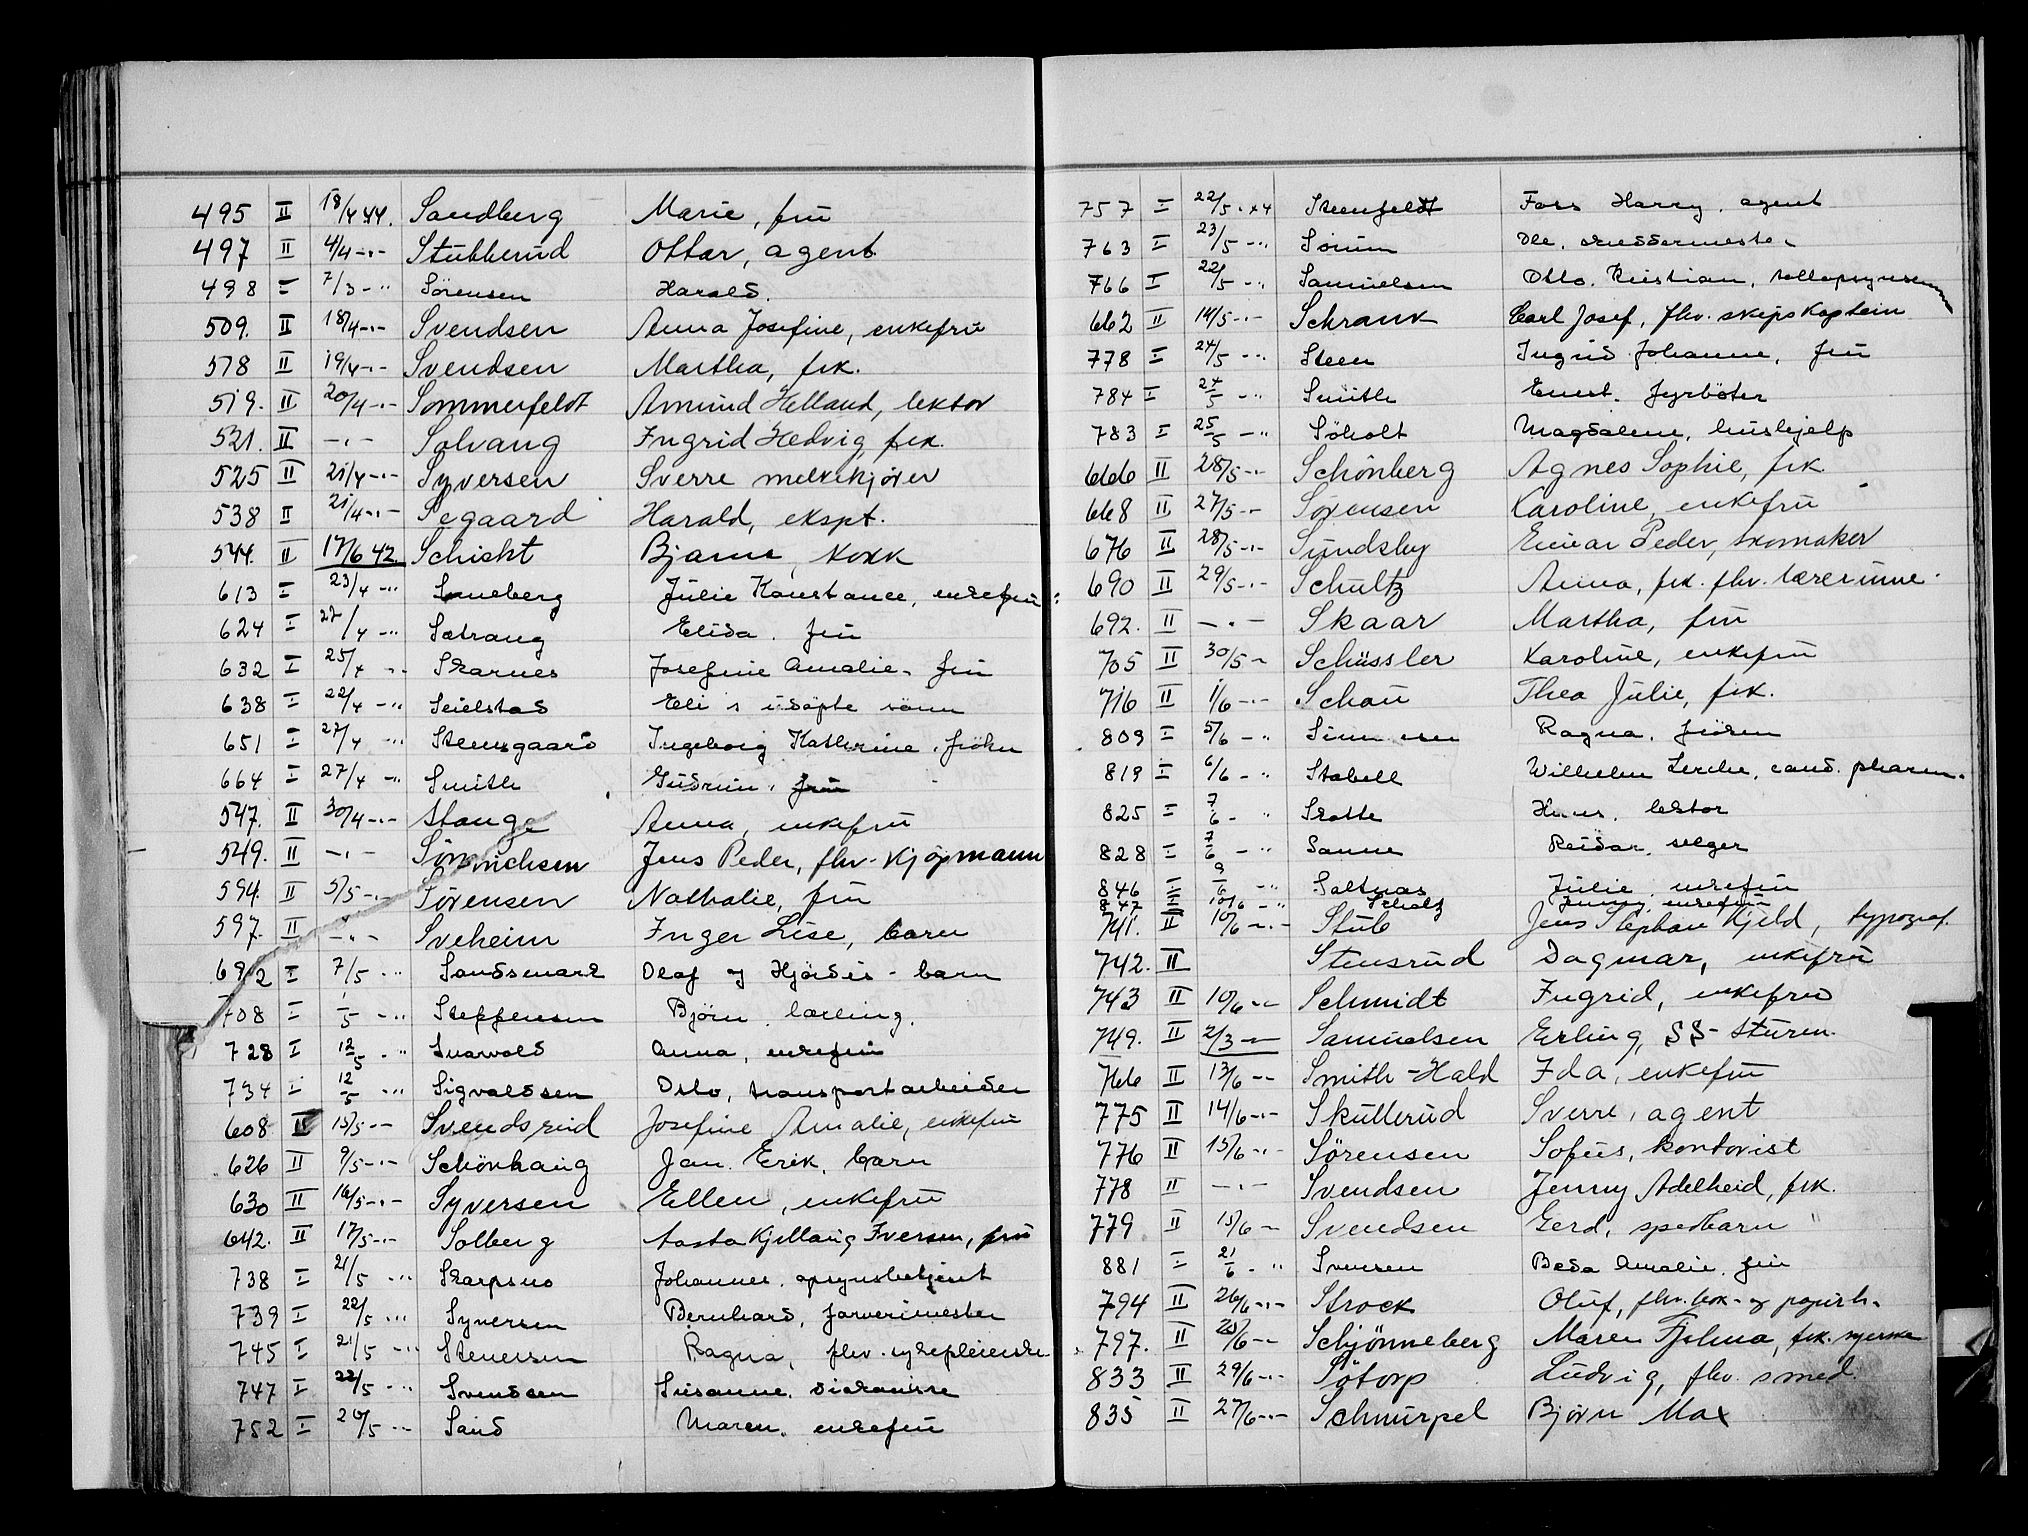 495 II 18/4 44. Sandberg Marie, fru
497 II 4/4 -"- Stubberud Ottar, agent
498 I 7/3 -"- Sörensen Harald.
509. II 18/4 -"- Svendsen Anna Josefine, enkefru
518 II 19/4 -"- Svendsen Martha, frk.
519. II 20/4 -"- Sommerfeldt Amund Helland, lektor
521. II -"- Solvang Ingrid Hedvig, frk.
525 II 21/4 -"- Syversen Sverre melkekjører
538 II 21/4 -"- Segaard Harald, ekspt.
544. II 17/6 42. Schicht Bjarne, kokk
613 I 23/4 -"- Julie Konstance, enkefru
624 I 27/4 -"- Sætrang Elida. fru
632 I 25/4 -"- Skarnes Josefine Amalie. fru
638 I 22/4 -"- Seielstad Eli s udöpte sönn
651 I 27/4 -"- Steensgaard Ingeborg Kathrine, frökn
664 I 27/4 -"- Smith Gudrun, fru
547. II 30/4 -"- Stange Anna, enkefru
549. II -"- Sönnichsen Jens Peder, fhv. kjøpmann
594. II 5/5 -"- Sørensen Nathalie, fru
597. II -"- Sveheim Inger Lise, barn
692 I 7/5 -"- Sandsmark Olaf og Hjördis - barn
708 I 1/5 -"- Steffensen Björn. lærling.
728 I 12/5 -"- Svarvold Anna, enkefru
734 I 12/5 -"- Sigvaldsen Oslo, transportarbeider
608 II 15/5 -"- Svendsrud Josefine Amalie, enkefru
626 II 9/5 -"- Schönhaug Jan. Erik, barn
630 II 16/5 -"- Syversen Ellen, enkefru
642. II 17/5 -"- Solberg Aasta Kjellaug Iversen, fru
738 I 21/5 -"- Skarpsno Johannes. opsynsbetjent
739 I 22/5 -"- Syversen Bernhard, farverimester
745 I 21/5 -"- Stenersen Ragna, fhv. sykepleierske
747 I 22/5 -"- Svendsen Susanne. diakonisse
752 I 20/5 -"- Sand Maren. enkefru
757 I 22/5 -"- 44 Steenfeldt Foss Harry. agent
763 I 23/5 -"- Sörum Ole. snedkermester
766 I 22/5 -"- Samuelsen Otto. Kristian, tollopsynsmann
662 II 14/5 -"- Schrank Carl Josef, fhv. skipskaptein
778 I 24/5 -"- Steen Ingrid Johanne, fru
784 I 24/5 -"- Smith Ernst. fyrböter
783 I 25/5 -"- Söholt Magdalene, hushjelp
666 II 28/5 -"- Schönberg Agnes Sophie, frk.
668 II 27/5 -"- Sørensen Karoline, enkefru
676 II 28/5 -"- Sundsby Einar Peder, skomaker
690 II 29/5 -"- Schultz Anna, frk. fhv. lærerinne.
692. II -"- Skaar Martha, fru
705 II 30/5 -"- Schüssler Karoline, enkefru
716 II 1/6 -"- Schau Thea Julie, frk.
809 I 5/6 -"- Simensen Ragna, fröken
819 I 6/6 -"- Stabell Wilhelm Lerche, cand. pharm.
825 I 7/6 -"- Skotte Hans, lektor
828 I 7/6 -"- Sanne Reidar, selger
846 I 9/6 -"- Saltnas Julie, enkefru
847 I 10/6 -"- Scholtz Jenny, enkefru
741. II 10/6 -"- Stub Jens Stephan Kjeld, typograf.
742. II Stensrud Dagmar, enkefru
743 II 10/6 -"- Schmidt Ingrid, enkefru
749. II 2/3 -"- Samuelsen Erling, SS-Sturm.
766 II 13/6 -"- Smith-Hald Ida, enkefru
775 II 14/6 -"- Skullerud Sverre, agent
776 II 15/6 -"- Sørensen Sofus, kontorist
778 II -"- Svendsen Jenny Adelheid, frk.
779 II 15/6 -"- Svendsen Gerd, spedbarn
881 I 21/6 -"- Svensen Beda Amalie. fru
794 II 26/6 -"- Strock Oluf, fhv. bok- og papirh.
797. II 25/6 -"- Schjønneberg Maren Fjelma, frk. syerske
833 II 29/6 -"- Sötorp Ludvig, fhv. smed.
835 II 27/6 -"- Schnurpel Bjørn Max